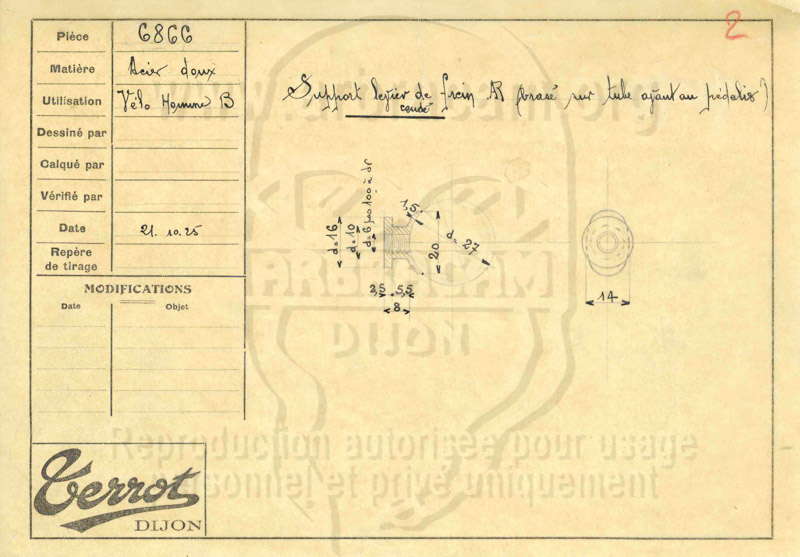 2
Pièce 6866
Matière Acier doux
Utilisation Vélo Homme B
Dessiné par
Calqué par
Vérifié par
Date 21.10.25
Repère
de tirage
MODIFICATIONS
Date Objet
Support levier de frein AR (brasé sur tube ajutant au pédalier)
coudé
d=16
d=10
d=6 pas 100 à dr
1,5
20
d=27
2,5 5,5
8
14
DIJON
Reproduction autorisée pour usage
personnel et privé uniquement
Terrot
DIJON